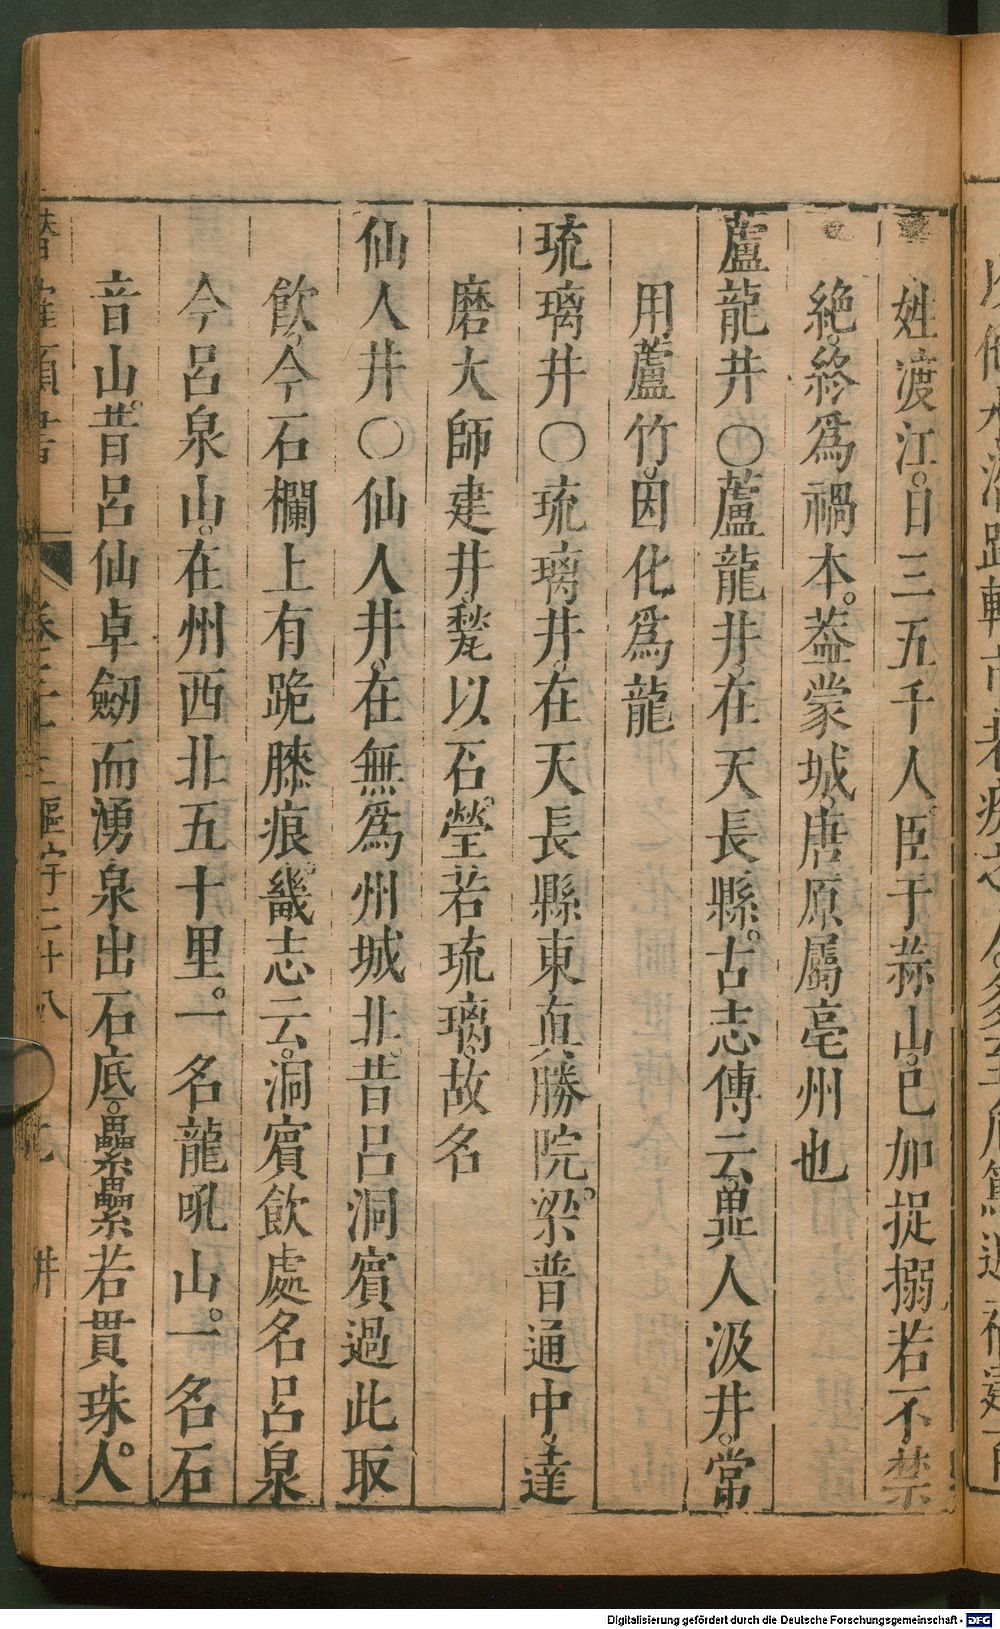 姓渡江。日三五千人。臣于蒜山。已加捉搦若不禁
絕。終爲禍本。葢蒙城。唐原屬亳州也
蘆龍井○蘆龍井。在天長縣。古志傳云。異人汲井。常
用蘆竹。因化爲龍
琉璃井○琉璃井。在天長縣東眞勝院。梁普通中。達
磨大師建井。甃以石。瑩若琉璃。故名
仙人井○仙人井。在無爲州城北。昔呂洞賓過此取
飲。今石欄上有跪膝痕。畿志云。洞賓飲處名呂泉
今呂泉山。在州西北五十里。一名龍吼山。一名石
音山。昔呂仙卓劒而湧泉出石底。纍纍若貫珠。人。
類書
字二十八
井
Digitalisierung gefördert durch die Deutsche Forschungsgemeinschaft - DFG